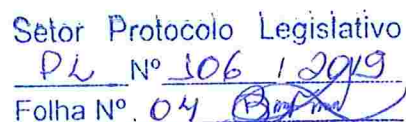 Setor Protocolo Legislativo
PL Nº 106 / 2019
Folha Nº 04